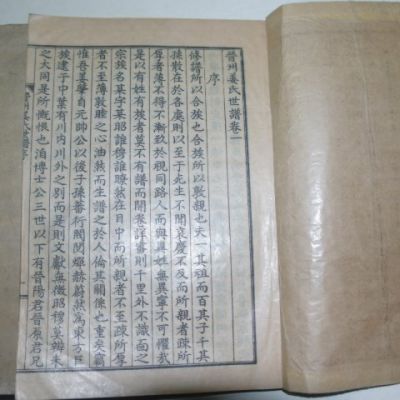 晉州姜氏世譜卷一
序
修譜所以合族也合族所以親親也夫一其祖而百其子千其
孫散在於各處則以至于死生不聞哀慶不及而所親者疎所
厚者薄不得不漸致於視同路人而與異姓無異寧不可懼哉
是以有姓有族者莫不有譜而開卷詳審則千里外不識面之
宗族名某字某昭誰穆誰瞭然在目中而所親者不至疎所厚
者不至薄敦睦之心油然而生譜之於人倫其關係也重矣竊
惟吾姜肇自元帥公以後子孫蕃衍閥閱燀赫蔚然爲東方巨
族逮于中葉有川內川外之別而是則文獻無徵昭穆莫辨未
之大同是所慨恨也洎博士公三世以下有晉陽君晉原君兄